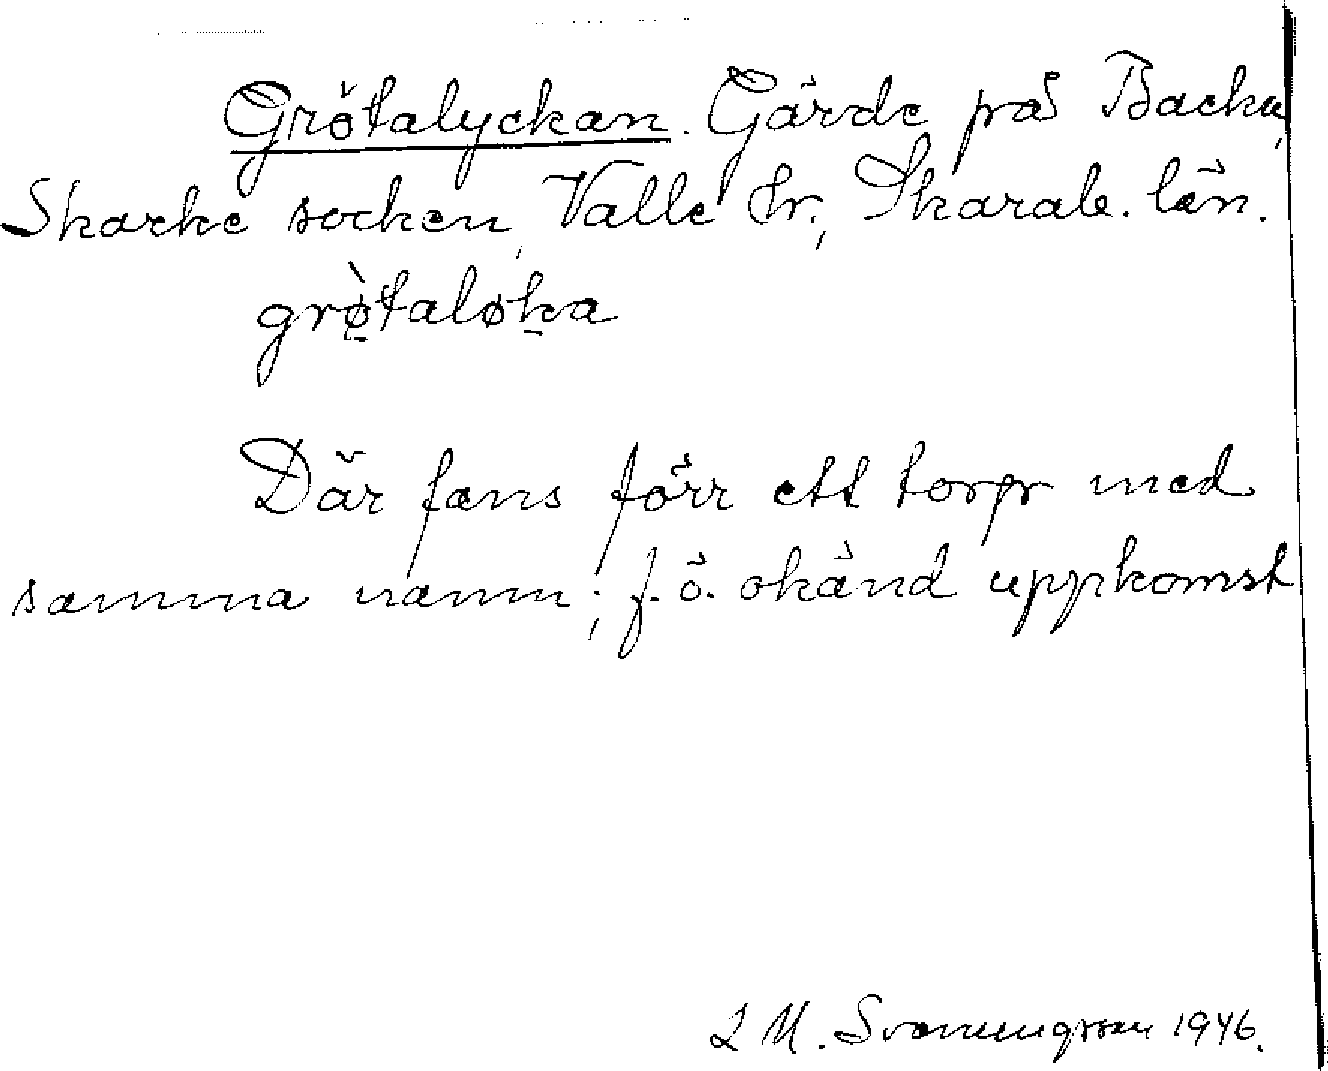 Grötalyckan. Gärde på Backa,
Skarke socken, Valle hr, Skarab. län.
grø̀taløka
Där fans förr ett torp med
samma namn; f. ö. okänd uppkomst
L M. Svenungsson 1946.